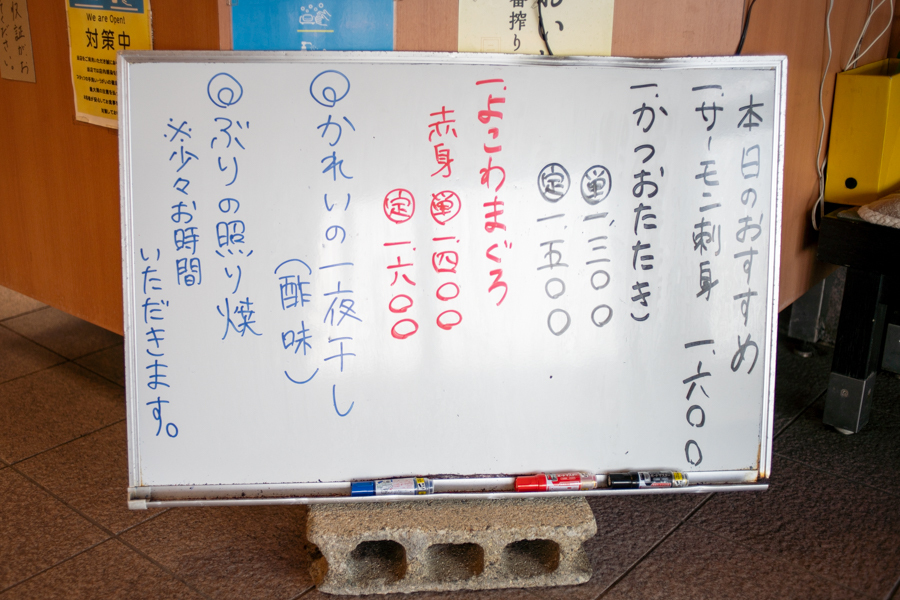 本日のおすすめ
一.サーモン刺身 一.六〇〇
一.かつおたたき
単 一.三〇〇
定 一.五〇〇
一.よこわまぐろ
赤身 単 一.四〇〇
定 一.六〇〇
◎かれいの一夜干し
(酢味)
◎ぶりの照り焼
※少々お時間
いただきます。
We are Open!
対策中
番搾り